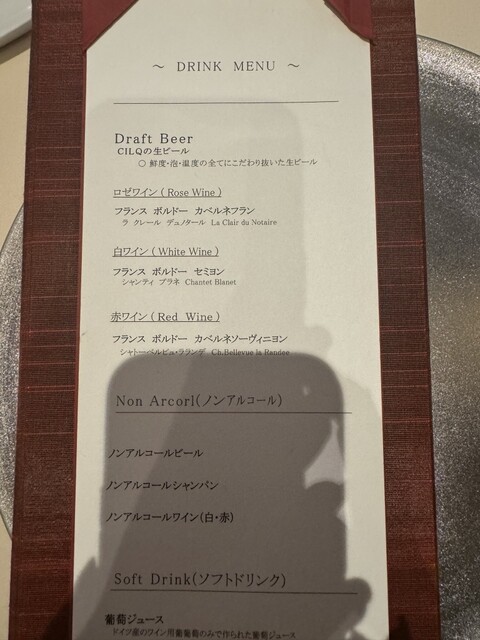 ～ DRINK MENU ～
Draft Beer
CILQの生ビール
○ 鮮度・泡・温度の全てにこだわり抜いた生ビール
ロゼワイン ( Rose Wine )
フランス ボルドー カベルネフラン
ラ クレール デュノタール La Clair du Notaire
白ワイン ( White Wine )
フランス ボルドー セミヨン
シャンティ ブラネ Chantet Blanet
赤ワイン ( Red Wine )
フランス ボルドー カベルネソーヴィニヨン
シャトーベルビュ・ラランデ Ch.Bellevue la Randee
Non Arcorl(ノンアルコール)
ノンアルコールビール
ノンアルコールシャンパン
ノンアルコールワイン(白・赤)
Soft Drink(ソフトドリンク)
葡萄ジュース
ドイツ産のワイン用葡萄のみで作られた葡萄ジュース